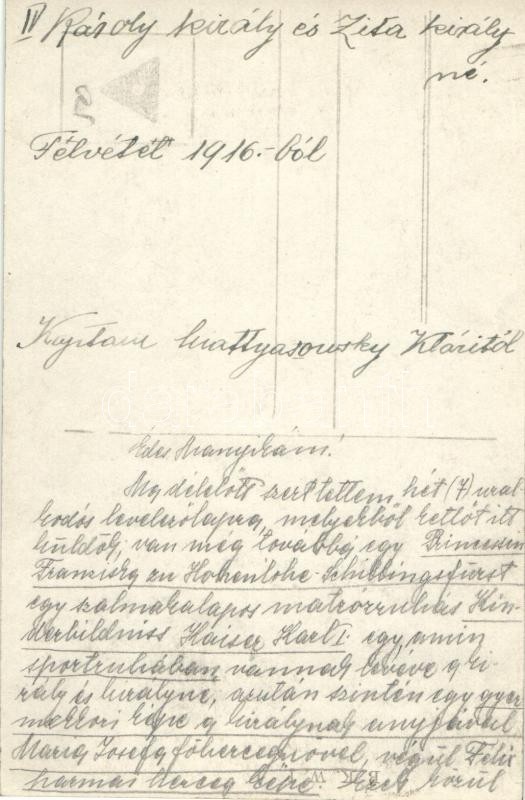 IV Károly király és Zita király
né.
Félvétel 1916.-ból
Kaptam Mattyasowsky Kláritól
Édes Aranyikám!
Ma délelőtt szert tettem hét (7) ural
kodós levelezőlapra, melyekből kettőt itt
küldök, van még továbbá egy Princessin
Franciska zu Hohenlohe-Schillingsfürst
egy szalmakalapos matrózruhás Kin
derbildniss Kaiser Karl I. egy, amin
sportruhában vannak levéve a ki
rály és királyné, azután szintén egy gyer
mekkori képe a királynak anyjával
Maria Josefa főhercegnővel, végül Felix
parmai herceg képe. Ezek közül